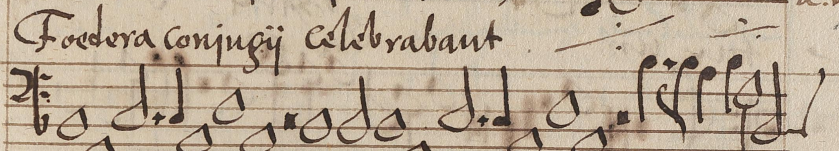 Foedera conjugij celebrabant